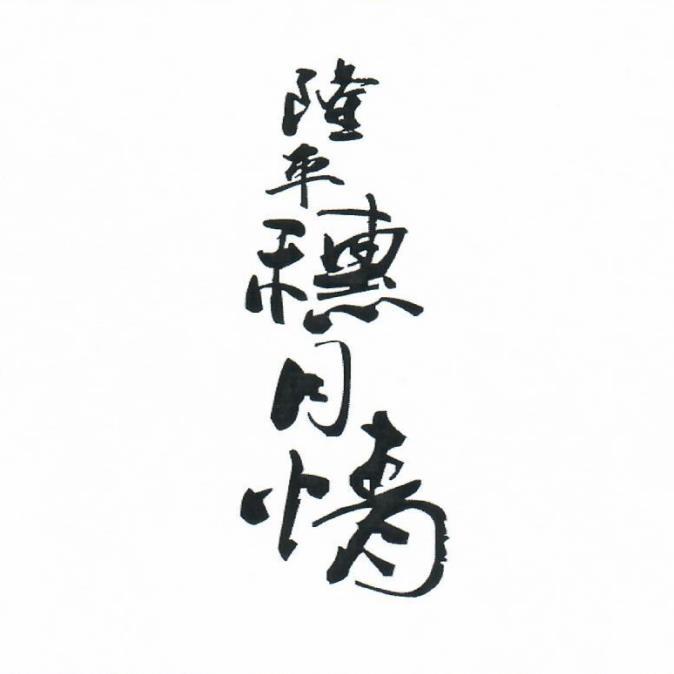 隆平穗月情